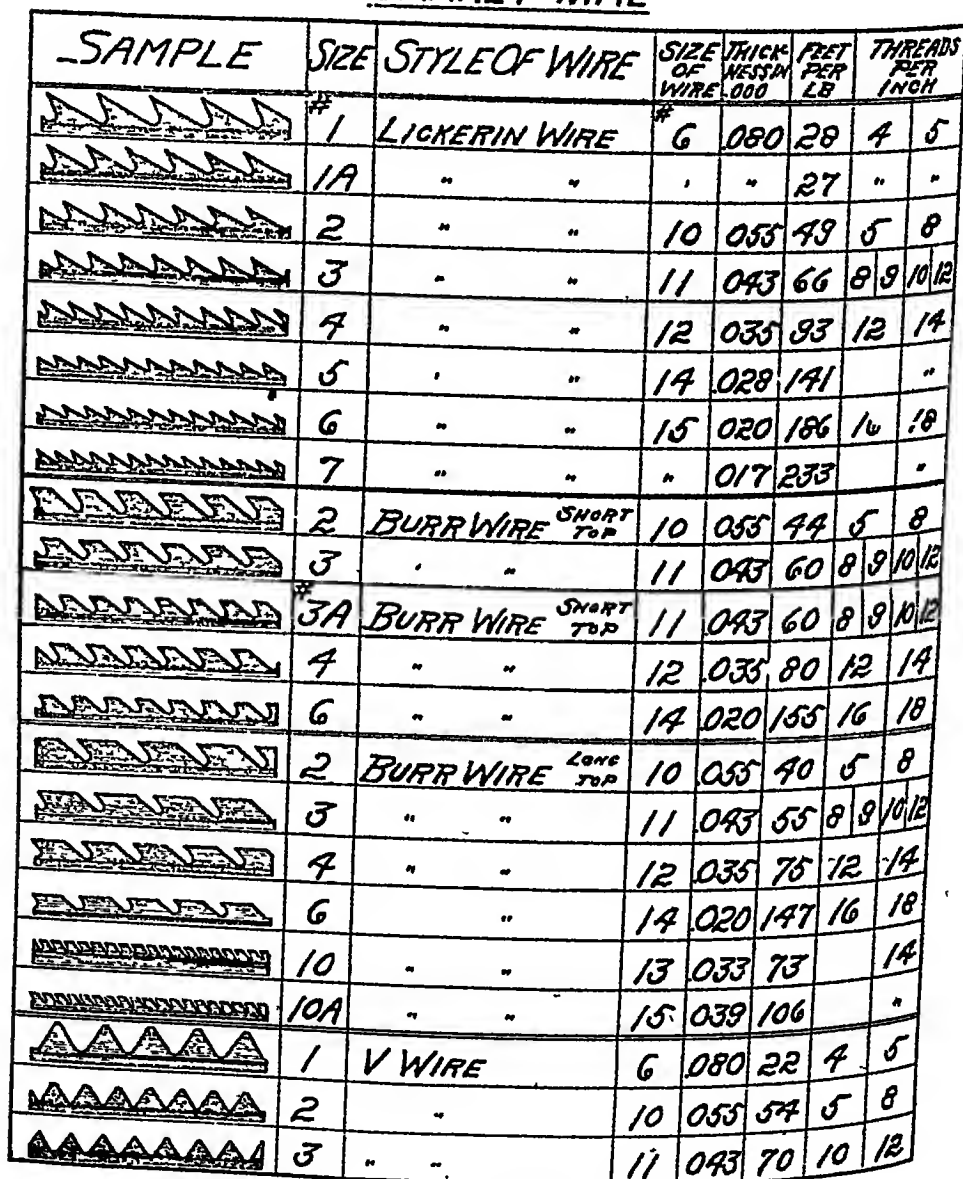 WIRE
SAMPLE SIZE STYLE OF WIRE SIZE OF WIRE THICKNESS IN .000 FEET PER LB THREADS PER INCH
#1 LICKERIN WIRE #6 .080 28 4 5
1A " " " " 27 " "
2 " " 10 055 49 5 8
3 " " 11 043 66 8 9 10 12
4 " " 12 035 93 12 14
5 " " 14 .028 141 "
6 " " 15 020 186 16 18
7 " " " 017 233 "
2 BURR WIRE SHORT TOP 10 055 44 5 8
3 " " 11 043 60 8 9 10 12
#3A BURR WIRE SHORT TOP 11 .043 60 8 9 10 12
4 " " 12 .035 80 12 14
6 " " 14 .020 155 16 18
2 BURR WIRE LONG TOP 10 .055 40 5 8
3 " " 11 .043 55 8 9 10 12
4 " " 12 .035 75 12 14
6 " 14 .020 147 16 18
10 " " 13 .033 73 14
10A " " 15 039 106 "
1 V WIRE 6 .080 22 4 5
2 " 10 055 54 5 8
3 " " 11 043 70 10 12